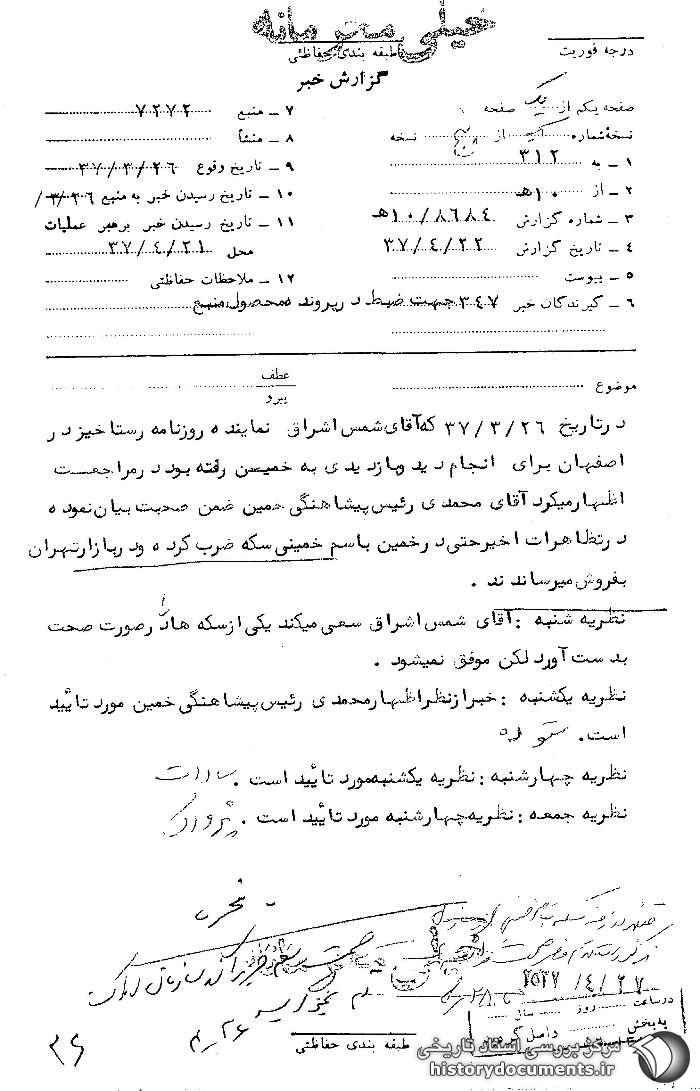 خیلی محرمانه
درجه فوریت
طبقه بندی حفاظتی
گزارش خبر
صفحه یکم از یک صفحه
نسخهٔ شماره از نسخه
۱ – به ۳۱۲
۲ – از ۱۰ هـ
۳ – شماره گزارش ۱۰/۸۶۸۴ هـ
۴ – تاریخ گزارش ۳۷/۴/۲۲
۵ – پیوست
۶ – گیرندگان خبر ۳۴۷ جهت ضبط در پرونده محصول منبع
۷ – منبع ۷۲۷۲
۸ – منشأ
۹ – تاریخ وقوع ۳۷/۳/۲۶
۱۰ – تاریخ رسیدن خبر به منبع ۳/۲۶/
۱۱ – تاریخ رسیدن خبر برهبر عملیات
محل ۳۷/۴/۲۱
۱۲ – ملاحظات حفاظتی
موضوع
عطف
پیرو
در تاریخ ۳۷/۳/۲۶ که آقای شمس اشراق نماینده روزنامه رستاخیز در
اصفهان برای انجام دید و بازدیدی به خمین رفته بود در مراجعت
اظهار میکرد آقای محمدی رئیس پیشاهنگی خمین ضمن صحبت بیان نموده
در تظاهرات اخیر حتی در خمین باسم خمینی سکه ضرب کرده و در بازار تهران
بفروش میرساندند .
نظریه شنبه : آقای شمس اشراق سعی میکند یکی از سکه ها را در صورت صحت
بدست آورد لکن موفق نمیشود .
نظریه یکشنبه : خبر از نظر اظهار محمدی رئیس پیشاهنگی خمین مورد تأیید
است . ستوده
نظریه چهارشنبه : نظریه یکشنبه مورد تأیید است . سادات
نظریه جمعه : نظریه چهارشنبه مورد تأیید است . پژواک
۲۵۳۷/۴/۲۷
در ساعت روز سال
به بخش داخل گردید
طبقه بندی حفاظتی
۴/۲۶
۳۶
مرکز بررسی اسناد تاریخی
historydocuments.ir